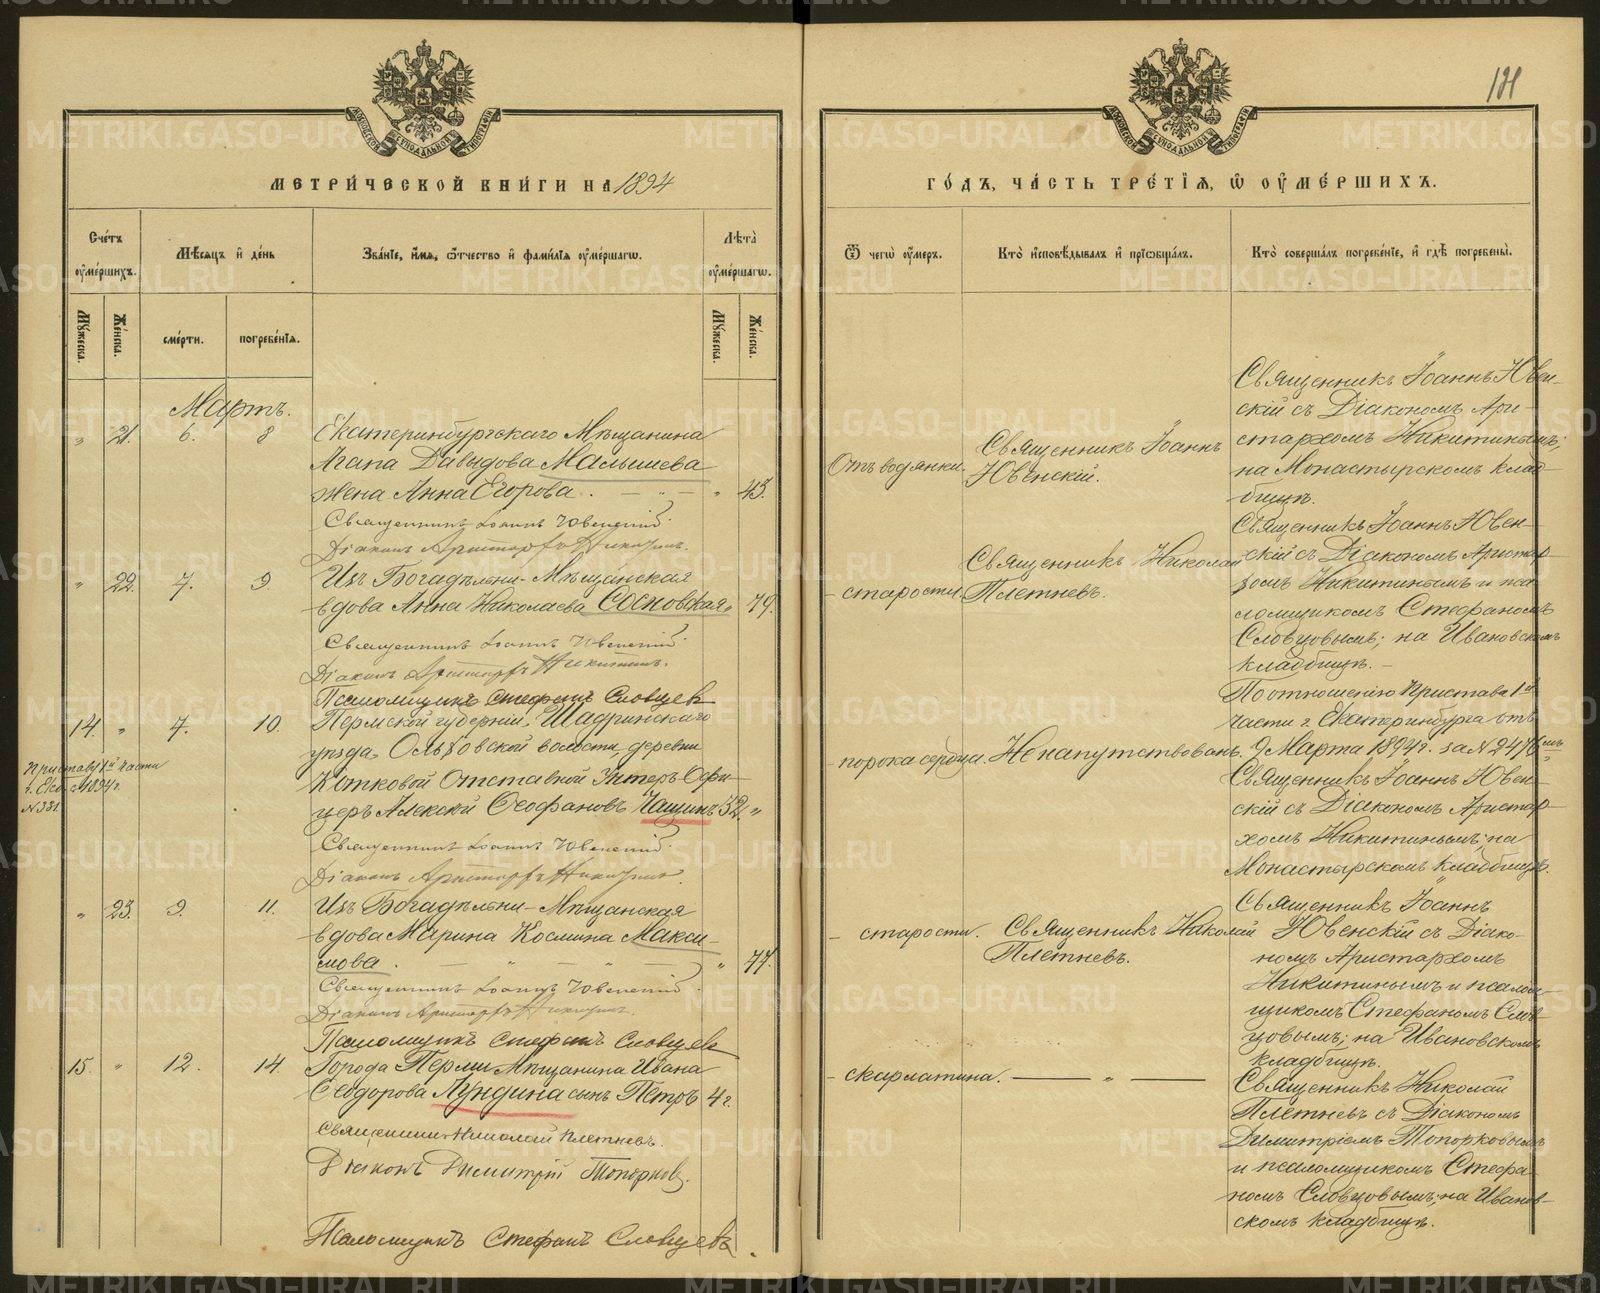 МЕТРИ́ЧЕСКОЙ КНИ́ГИ НА 1894
Сче́тъ оу҆ме́ршихъ.
Мѣ́сяцъ и҆ де́нь
Зва́нїе, и҆́мя, ѻ҆́тчество и҆ фами́лїя оу҆ме́ршагѡ.
Лѣ́та оу҆ме́ршагѡ.
Му́жеска.
Же́нска.
сме́рти.
погребе́нїя.
Му́жеска.
Же́нска.
Мартъ.
„ 21. 6. 8
Екатеринбургскаго Мѣщанина
Агапа Давыдова Малышева
жена Анна Егорова. — „ — „ 43.
Священникъ Іоаннъ Ювенскій.
Діаконъ Аристархъ Никитинъ.
„ 22. 7. 9.
Изъ Богадѣльни - Мѣщанская
вдова Анна Николаева Сосновская „ 79.
Священникъ Іоаннъ Ювенскій.
Діаконъ Аристархъ Никитинъ.
Псаломщикъ Стефанъ Словцевъ
14. „ 7. 10.
Пермской губерніи, Шадринскаго
уѣзда, Ольховской волости, деревни
Котковой Отставной Унтеръ Офи-
церъ Алексій Ѳеофановъ Чащинъ 52. „
Приставу 1й части
г. Екб. 1894 г.
№ 381.
Священникъ Іоаннъ Ювенскій.
Діаконъ Аристархъ Никитинъ.
„ 23. 9. 11.
Изъ Богадѣльни - Мѣщанская
вдова Марина Космина Макси-
мова. — „ — „ — „ 77.
Священникъ Іоаннъ Ювенскій.
Діаконъ Аристархъ Никитинъ.
Псаломщикъ Стефанъ Словцевъ
15. „ 12. 14.
Города Перми Мѣщанина Ивана
Ѳеодорова Лундина сынъ Петръ 4 г.
Священникъ Николай Плетневъ.
Діаконъ Димитрій Топорковъ.
Псаломщикъ Стефанъ Словцевъ.
121
ГО́ДЪ, ЧА́СТЬ ТРЕ́ТЇЯ, Ѡ҆ ОУ҆МЕ́РШИХЪ.
Ѿ чегѡ̀ оу҆́меръ.
Кто̀ и҆сповѣ́дывалъ и҆ прїѡбща́лъ.
Кто̀ соверша́лъ погребе́нїе, и҆ гдѣ̀ погребены̀.
Отъ водянки.
Священникъ Іоаннъ
Ювенскій.
Священникъ Іоаннъ Ювен-
скій съ Діакономъ Ари-
стархомъ Никитинымъ;
на Монастырскомъ клад-
бищѣ.
- старости.
Священникъ Николай
Плетневъ.
Священникъ Іоаннъ Ювен-
скій съ Діакономъ Аристар-
хомъ Никитинымъ и пса-
ломщикомъ Стефаномъ
Словцовымъ; на Ивановскомъ
кладбищѣ. -
- порока сердца.
Не напутствованъ.
По отношенію Пристава 1й
части г. Екатеринбурга отъ
9 Марта 1894 г. за № 2476мъ
Священникъ Іоаннъ Ювен-
скій съ Діакономъ Аристар-
хомъ Никитинымъ; на
Монастырскомъ кладбищѣ.
- старости.
Священникъ Николай
Плетневъ.
Священникъ Іоаннъ
Ювенскій съ Діако-
номъ Аристархомъ
Никитинымъ и псалом-
щикомъ Стефаномъ Слов-
цовымъ; на Ивановскомъ
кладбищѣ.
- скарлатина. — „ —
Священникъ Николай
Плетневъ съ Діакономъ
Димитріемъ Топорковымъ
и псаломщикомъ Стефа-
номъ Словцовымъ; на Иванов-
скомъ кладбищѣ.
METRIKI.GASO-URAL.RU